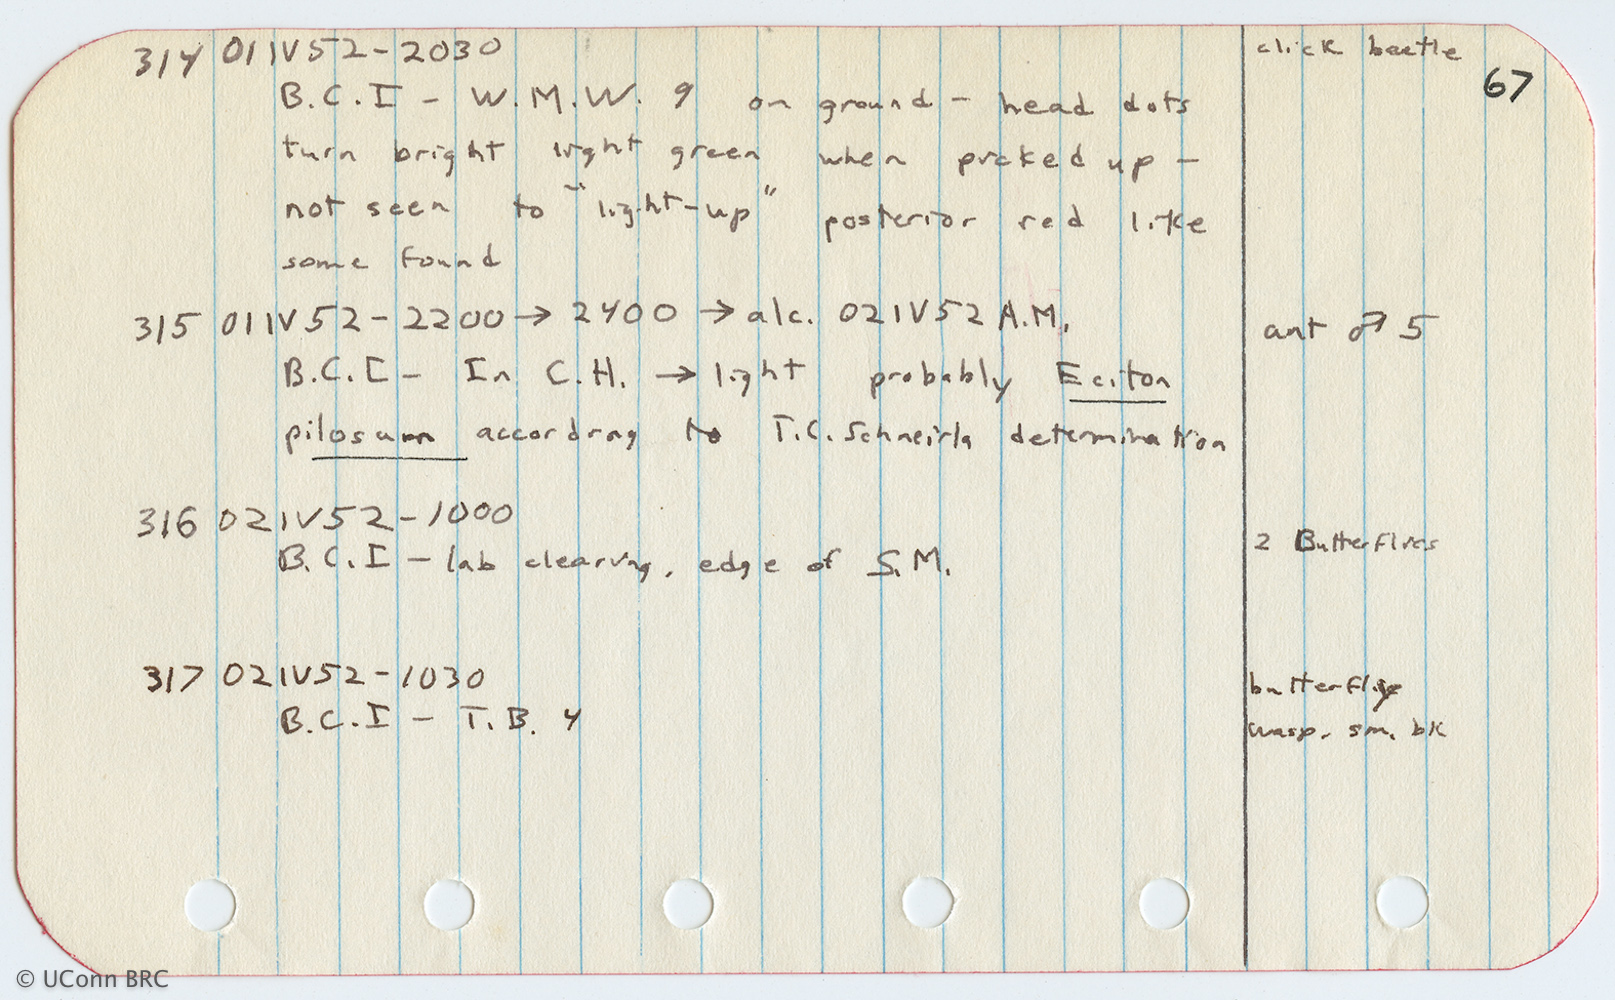 314 011V52-2030 click beetle
67
B.C.I - W.M.W. 9 on ground - head dots
turn bright light green when picked up -
not seen to "light-up" posterior red like
some found
315 011V52-2200 → 2400 → alc. 021V52 A.M. ant ♂ 5
B.C.I - In C.H. → light probably Eciton
pilosum according to T.C. Schneirla determination
316 021V52-1000
2 Butterflies
B.C.I - lab clearing, edge of S.M.
317 021V52-1030 butterfly
B.C.I - T.B. 4 wasp, sm. bk
© UConn BRC